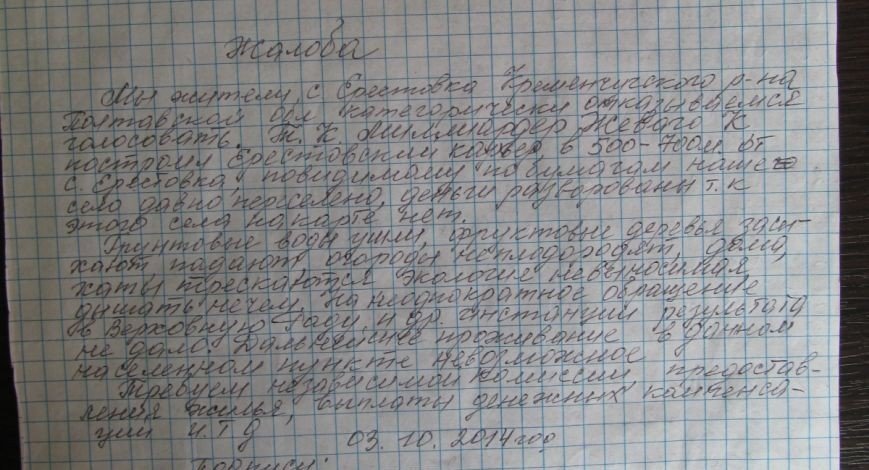 Жалоба
Мы жители с Ерестовка Кременчугского р-на
Полтавской обл категорически отказываемся
голосовать. Т. К. Миллиардер Жеваго К
построил Ерестовский карьер в 500-700м от
с. Ерестовка, повидимому по бумагам наше
село давно переселено, деньги разворованы т. к
этого села на карте нет.
Грунтовые воды ушли, фруктовые деревья засы-
хают падают, огороды неплодородят, дома,
хаты трескаются экология невыносимая,
дышать нечем. На неоднократное обращение
в Верховную Раду и др. инстанции результата
не дало. Дальнейшее проживание в данном
населенном пункте невозможное
Требуем независимой комиссии, предостав-
ления жилья, выплаты денежных компенса-
ции и.т д
03. 10. 2014 год
Подписи: